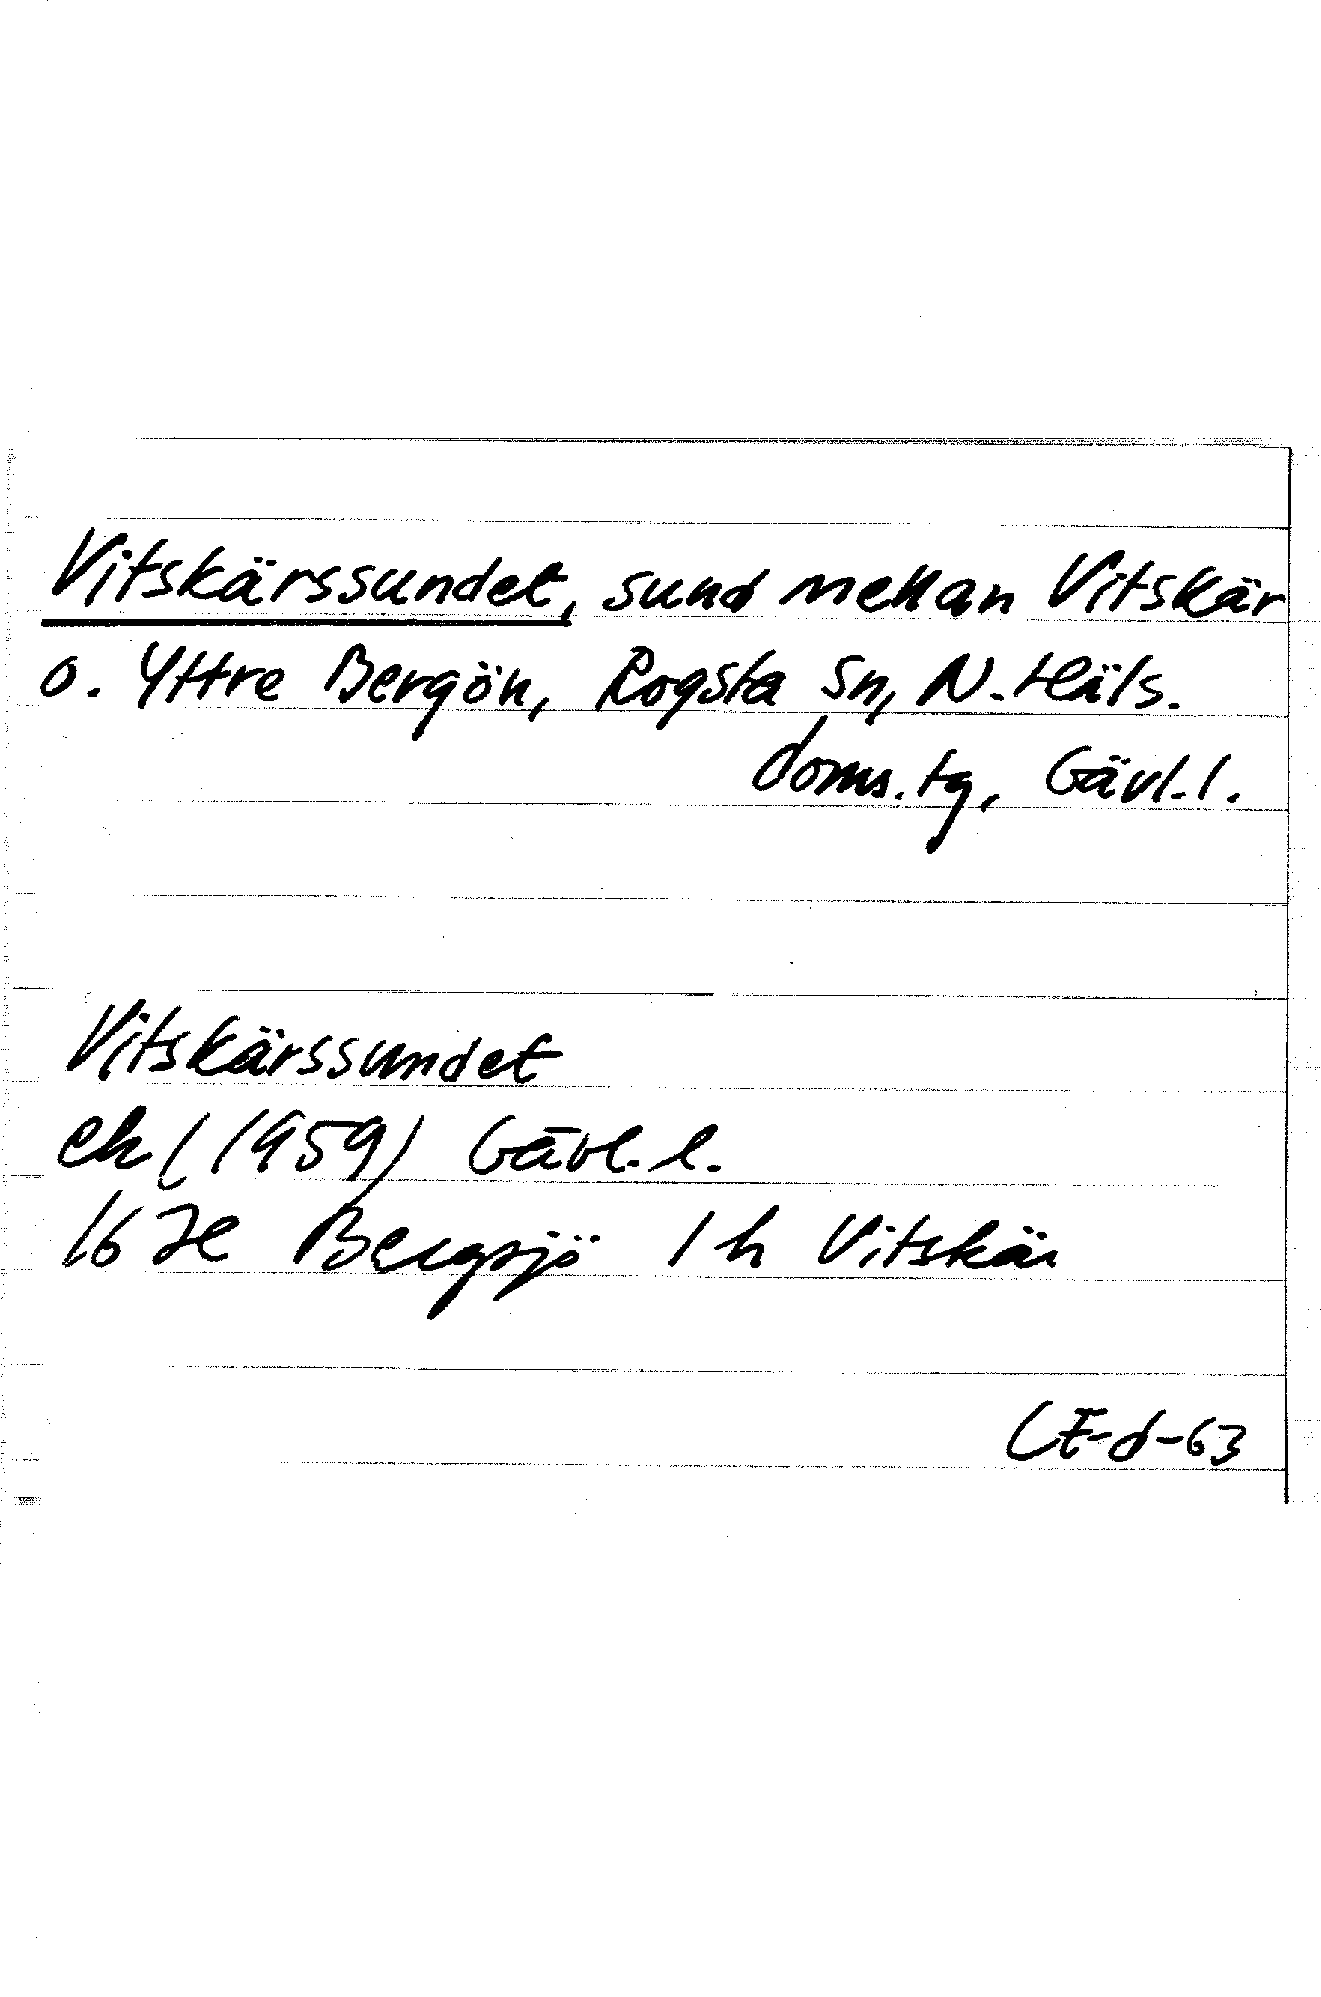 Vitskärssundet, sund mellan Vitskär
o. Yttre Bergön, Rogsta Sn, N. Häls.
doms. tg, Gävl. l.
Vitskärssundet
ek (1959) Gävl. l.
16 H Bergsjö 1 h Vitskär
CE-d-63